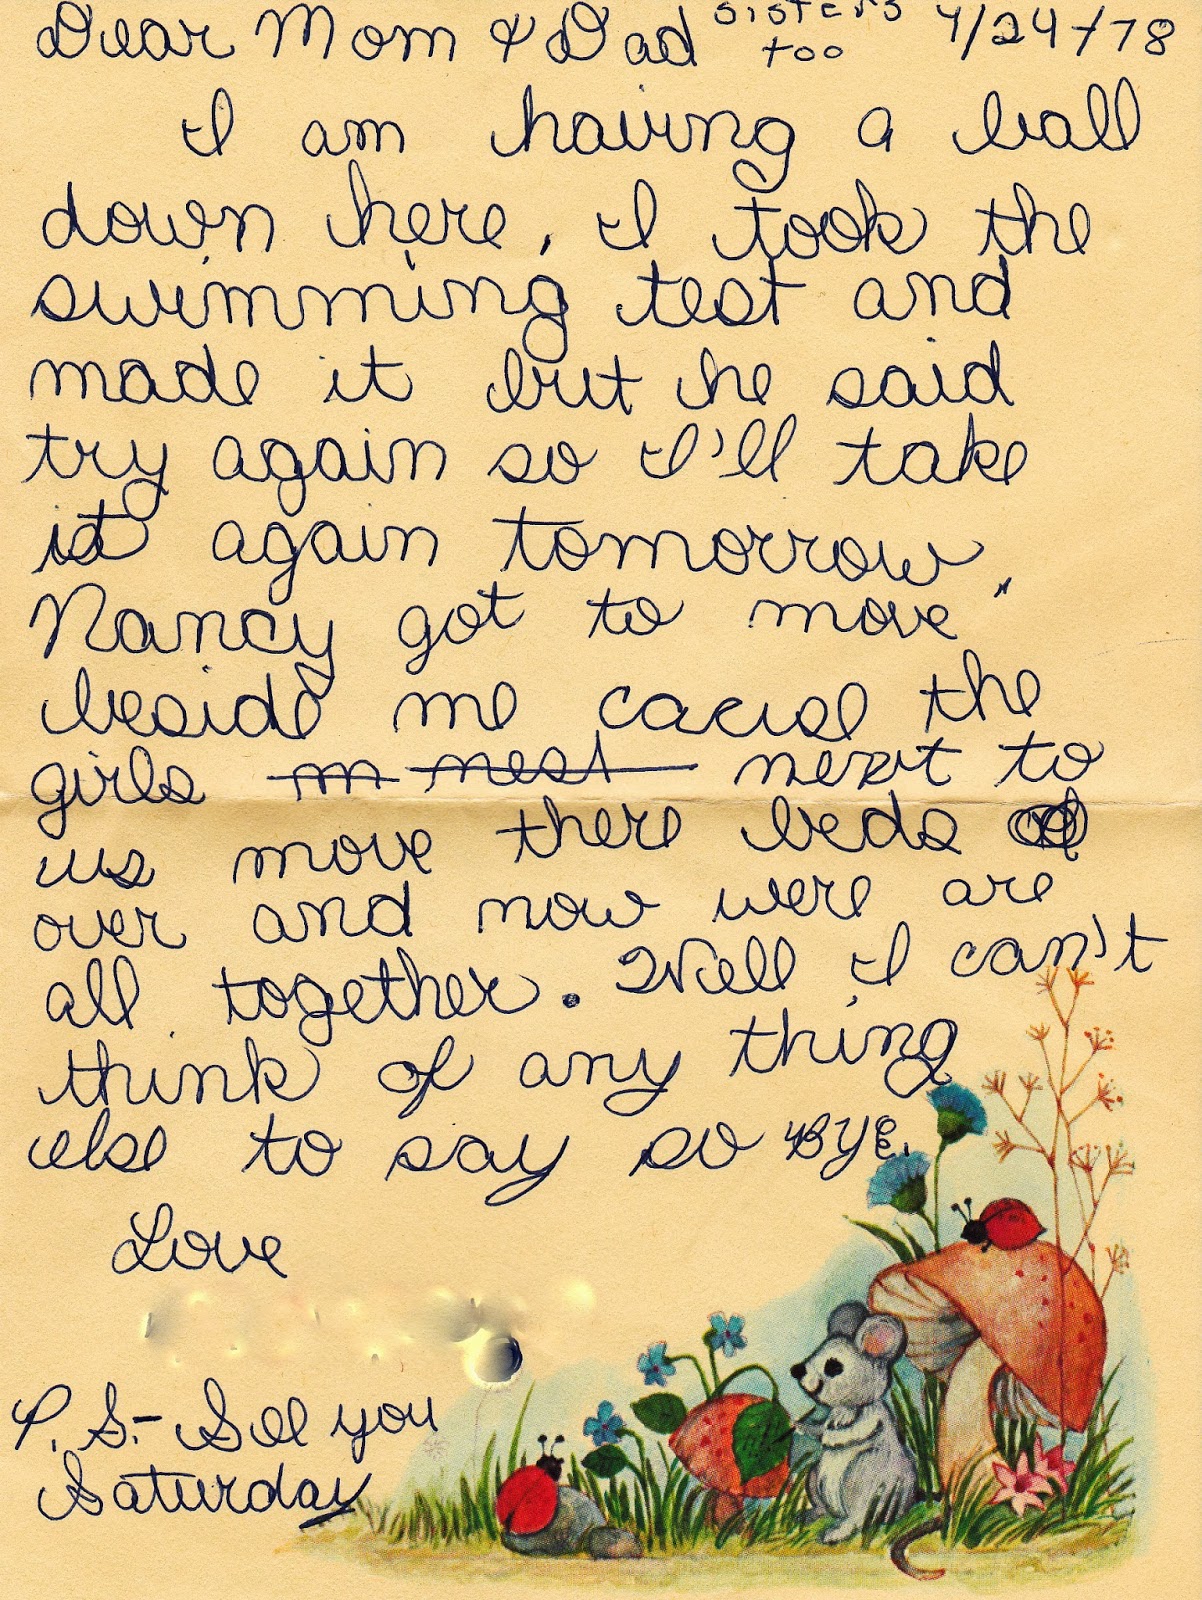 Dear Mom & Dad sisters too 7/24/78
I am having a ball
down here, I took the
swimming test and
made it but he said
try again so I'll take
it again tomorrow.
Nancy got to move
beside me cacuse the
girls next to
us move there beds
over and now were are
all together. Well, I can't
think of any thing
else to say so BYE.
Love
P.S.- See you
Saturday